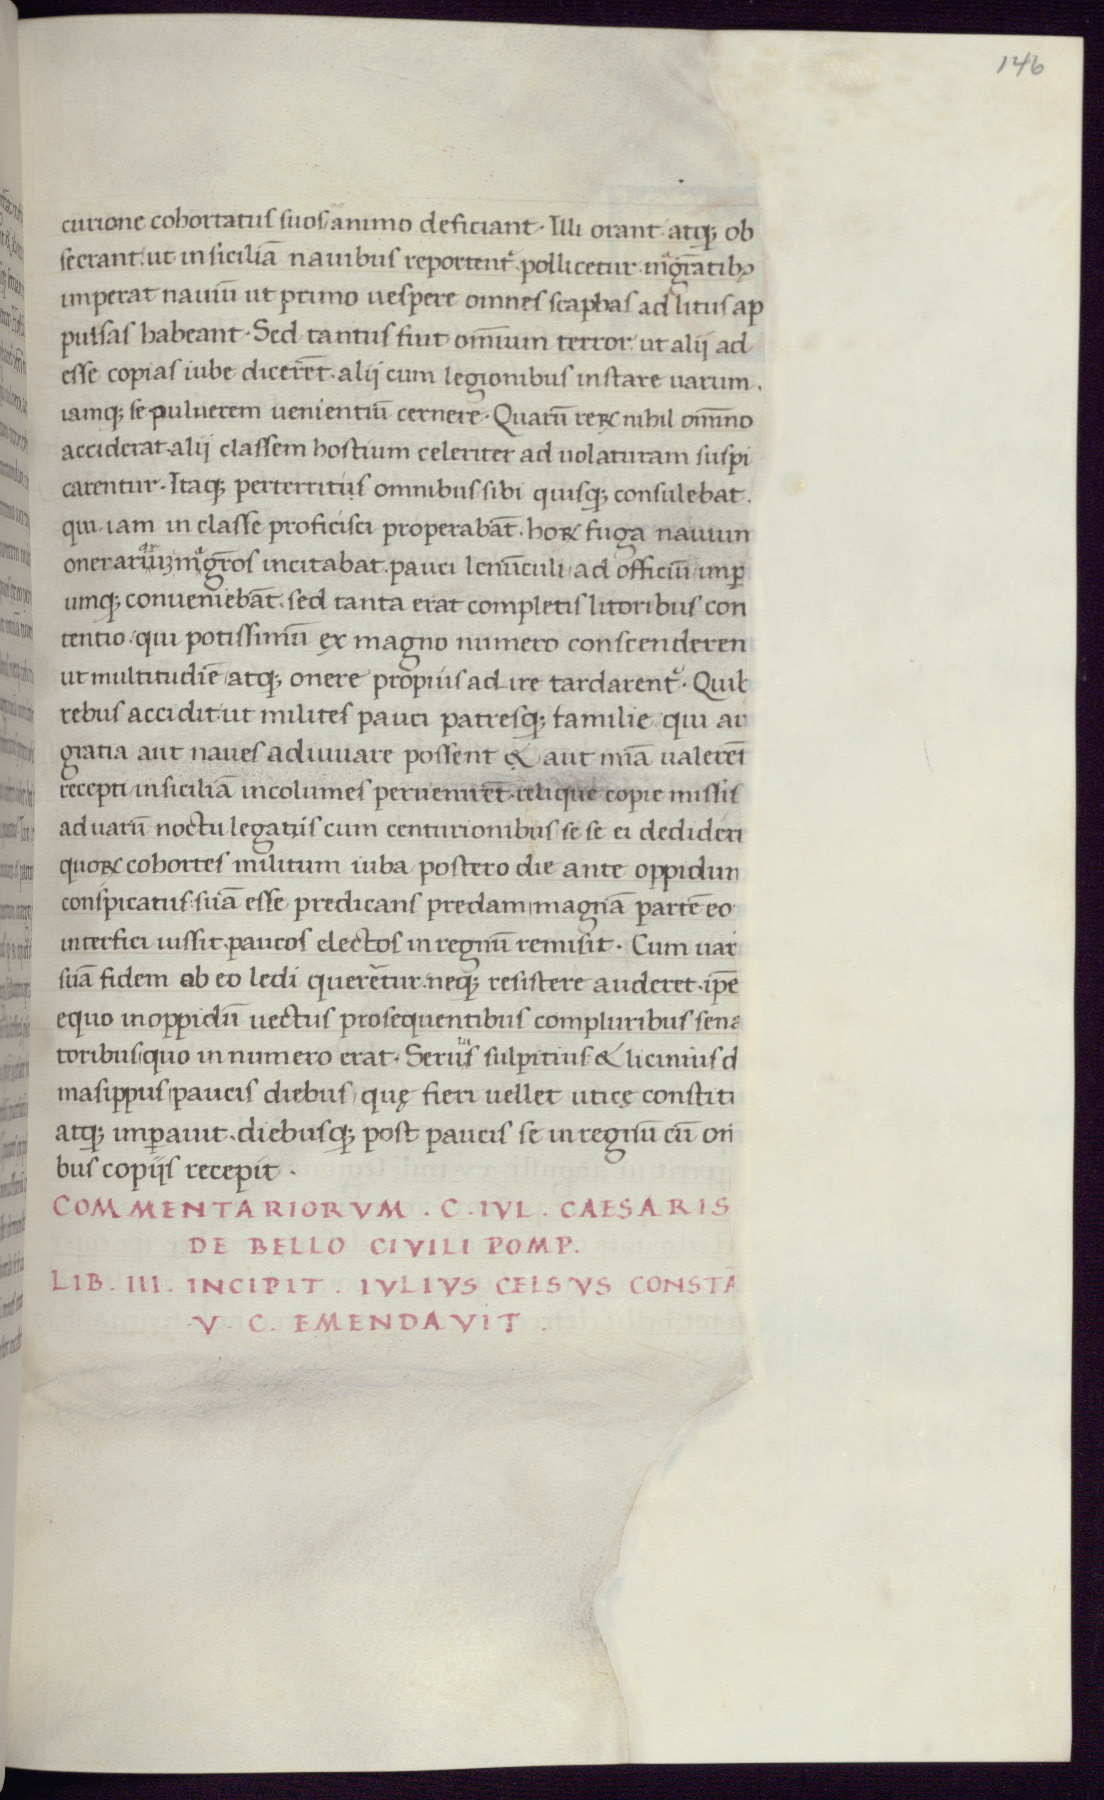 146
curione cohortatus suos animo deficiant. Illi orant atq; ob
secrant. ut in siciliā navibus reportent᷑. pollicetur. mͣgr̄atibꝫ
imperat naviū ut primo uespere omnes scaphas ad litus ap
pulsas habeant. Sed tantus fuit om̄ium terror. ut alij ad
esse copias iube dicerēt. alij cum legionibus instare uarum.
iamq; se puluerem uenientiū cernere. Quarū reꝝ nihil om̄no
acciderat. alij classem hostium celeriter ad uolaturam suspi
carentur. Itaq; perterritus omnibus sibi quisq; consulebat.
qui iam in classe proficisci properabāt. hoꝝ fuga nauium
onerariuꝫ mͣgr̄os incitabat. pauci lenūculi ad officiū imp̄
iumq; conueniebāt. sed tanta erat completis litoribus con
tentio. qui potissimū ex magno numero conscenderen
ut multitudīe atq; onere propius adire tardarent᷑. Quib
rebus accidit ut milites pauci patresq; familie qui au
gratia aut naues adiuuare possent & aut mīa ualerēt
recepti in siciliā incolumes peruenirēt. relique copie missis
ad uarū noctu legatiis cum centurionibus se se ei dedider
quoꝝ cohortes militum iuba postero die ante oppidum
conspicatus suā esse predicans predam magnā partē eo
interfici iussit. paucos electos in regnū remisit. Cum uar
suā fidem ab eo ledi querētur. neq; resistere auderet. ip̄e
equo in oppidū uectus prosequentibus compluribus sena
toribus quo in numero erat. Seruius sulpitius & licinius d
masippus paucis diebus quę fieri uellet uticę constiti
atq; imp̄auit. diebusq; post paucis se in regnū cū om̄
bus copijs recepit.
COMMENTARIORVM . C . IVL . CAESARIS
DE BELLO CIVILI POMP.
LIB . III . INCIPIT . IVLIVS CELSVS CONSTĀ
V . C . EMENDAVIT .